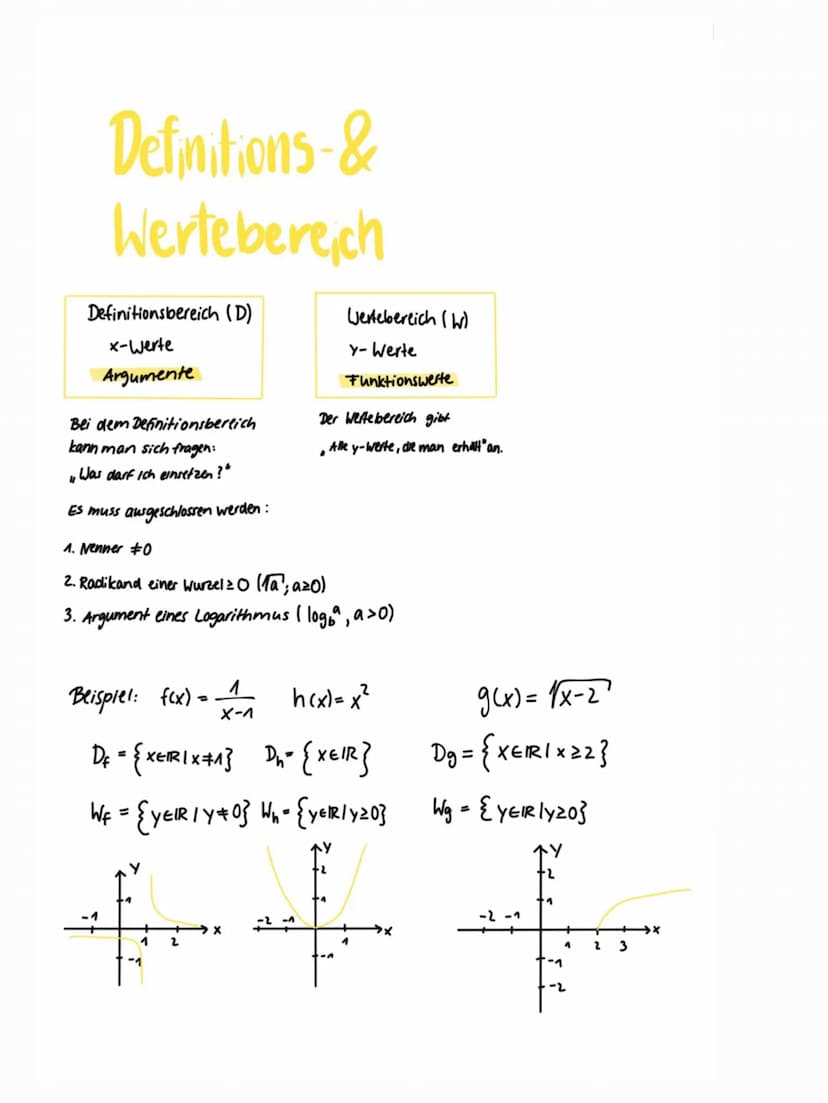 Definitions-&
Wertebereich
Definitionsbereich (D)
x-Werte
Argumente
Wertebereich (W)
y-Werte
Funktionswerte
Bei dem Definitionsbereich
kann man sich fragen:
„Was darf ich einsetzen?"
Der Wertebereich gibt
„Alle y-Werte, die man erhält" an.
Es muss ausgeschlossen werden:
1. Nenner ≠0
2. Radikand einer Wurzel ≥ 0 (√a ; a≥0)
3. Argument eines Logarithmus ( log_b^a , a >0)
Beispiel: f(x) = 1/(x-1) h(x) = x² g(x) = √(x-2)
D_f = {x∈ℝ | x≠1} D_h = {x∈ℝ} D_g = {x∈ℝ | x ≥2}
W_f = {y∈ℝ | y≠0} W_h = {y∈ℝ | y≥0} W_g = {y∈ℝ | y≥0}
y
1
-1
1 2 x
-1
y
2
1
-2 -1
1 x
-1
y
2
1
-2 -1
1 2 3 x
-1
-2